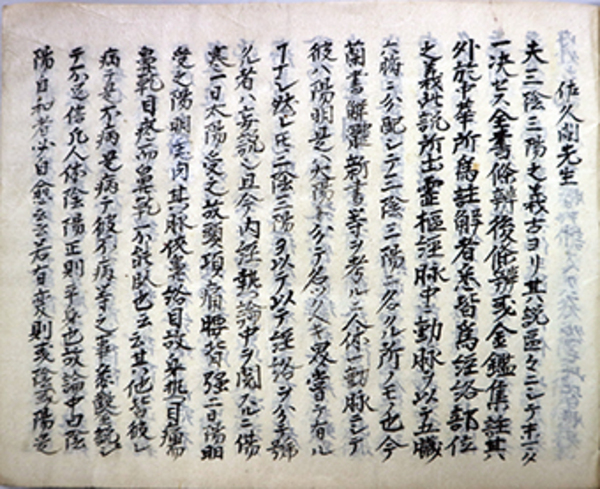 佐久間先生
夫三陰三陽之義古ヨリ其説區々ニシテ
一决セス金書條辨後條辨或金鑑集註其
外於中華所爲註解者悉皆爲経絡部位
之義此説所出霊樞経脉中ニ動脉ヲ以テ五臓
六腑ニ分配シテ三陰三陽ニ名クル所ノモノ也今
蘭書解體新書等ヲ考ルニ人体一動脉ニシテ
彼ハ陽明是ハ太陽ト分テ名ツクヘキ理嘗テ有ル
ナシ然レ氏三陰三陽ヲ以テ以テ経絡ヲ分テ號
ル者ハ妄説ニ且今内経熱論中ヲ閲スルニ傷
寒一日太陽受之故頭項痛腰背强二日陽明
受之陽明主肉其脉侠鼻絡目故身熱目痛
鼻乾目疼而鼻乾不能臥也云云其他皆彼
病テ是不病是病テ彼不病等之事
テ不足信凡人体陰陽正則平身也故論中曰陰
陽自和者必自愈云云若有変則或陰或陽